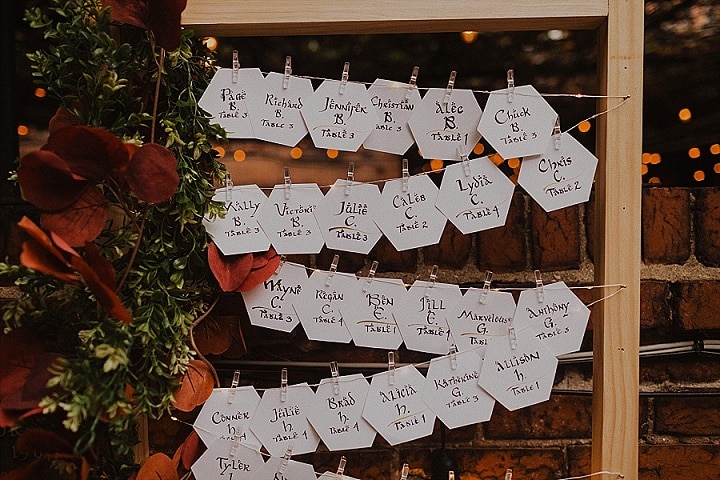 Page
B.
Table 3
Richard
B.
Table 3
Jennifer
B.
Table 3
Christian
B.
Table 3
Alec
B.
Table 1
Chuck
B.
Table 3
Chris
C.
Table 2
Wally
B.
Table 3
Victoria
B.
Table 3
Julie
C.
Table 3
Caleb
C.
Table 2
Lydia
C.
Table 4
Wayne
C.
Table 3
Regan
C.
Table 4
Ben
C.
Table
Jill
C.
Table
Marvelous
G.
Table
Anthony
G.
Table 3
Allison
h.
Table 1
Connor
h.
Table
Julie
h.
Table 4
Brad
h.
Table 4
Alicia
h.
Table
Katherine
G.
Table 3
Tyler
h.